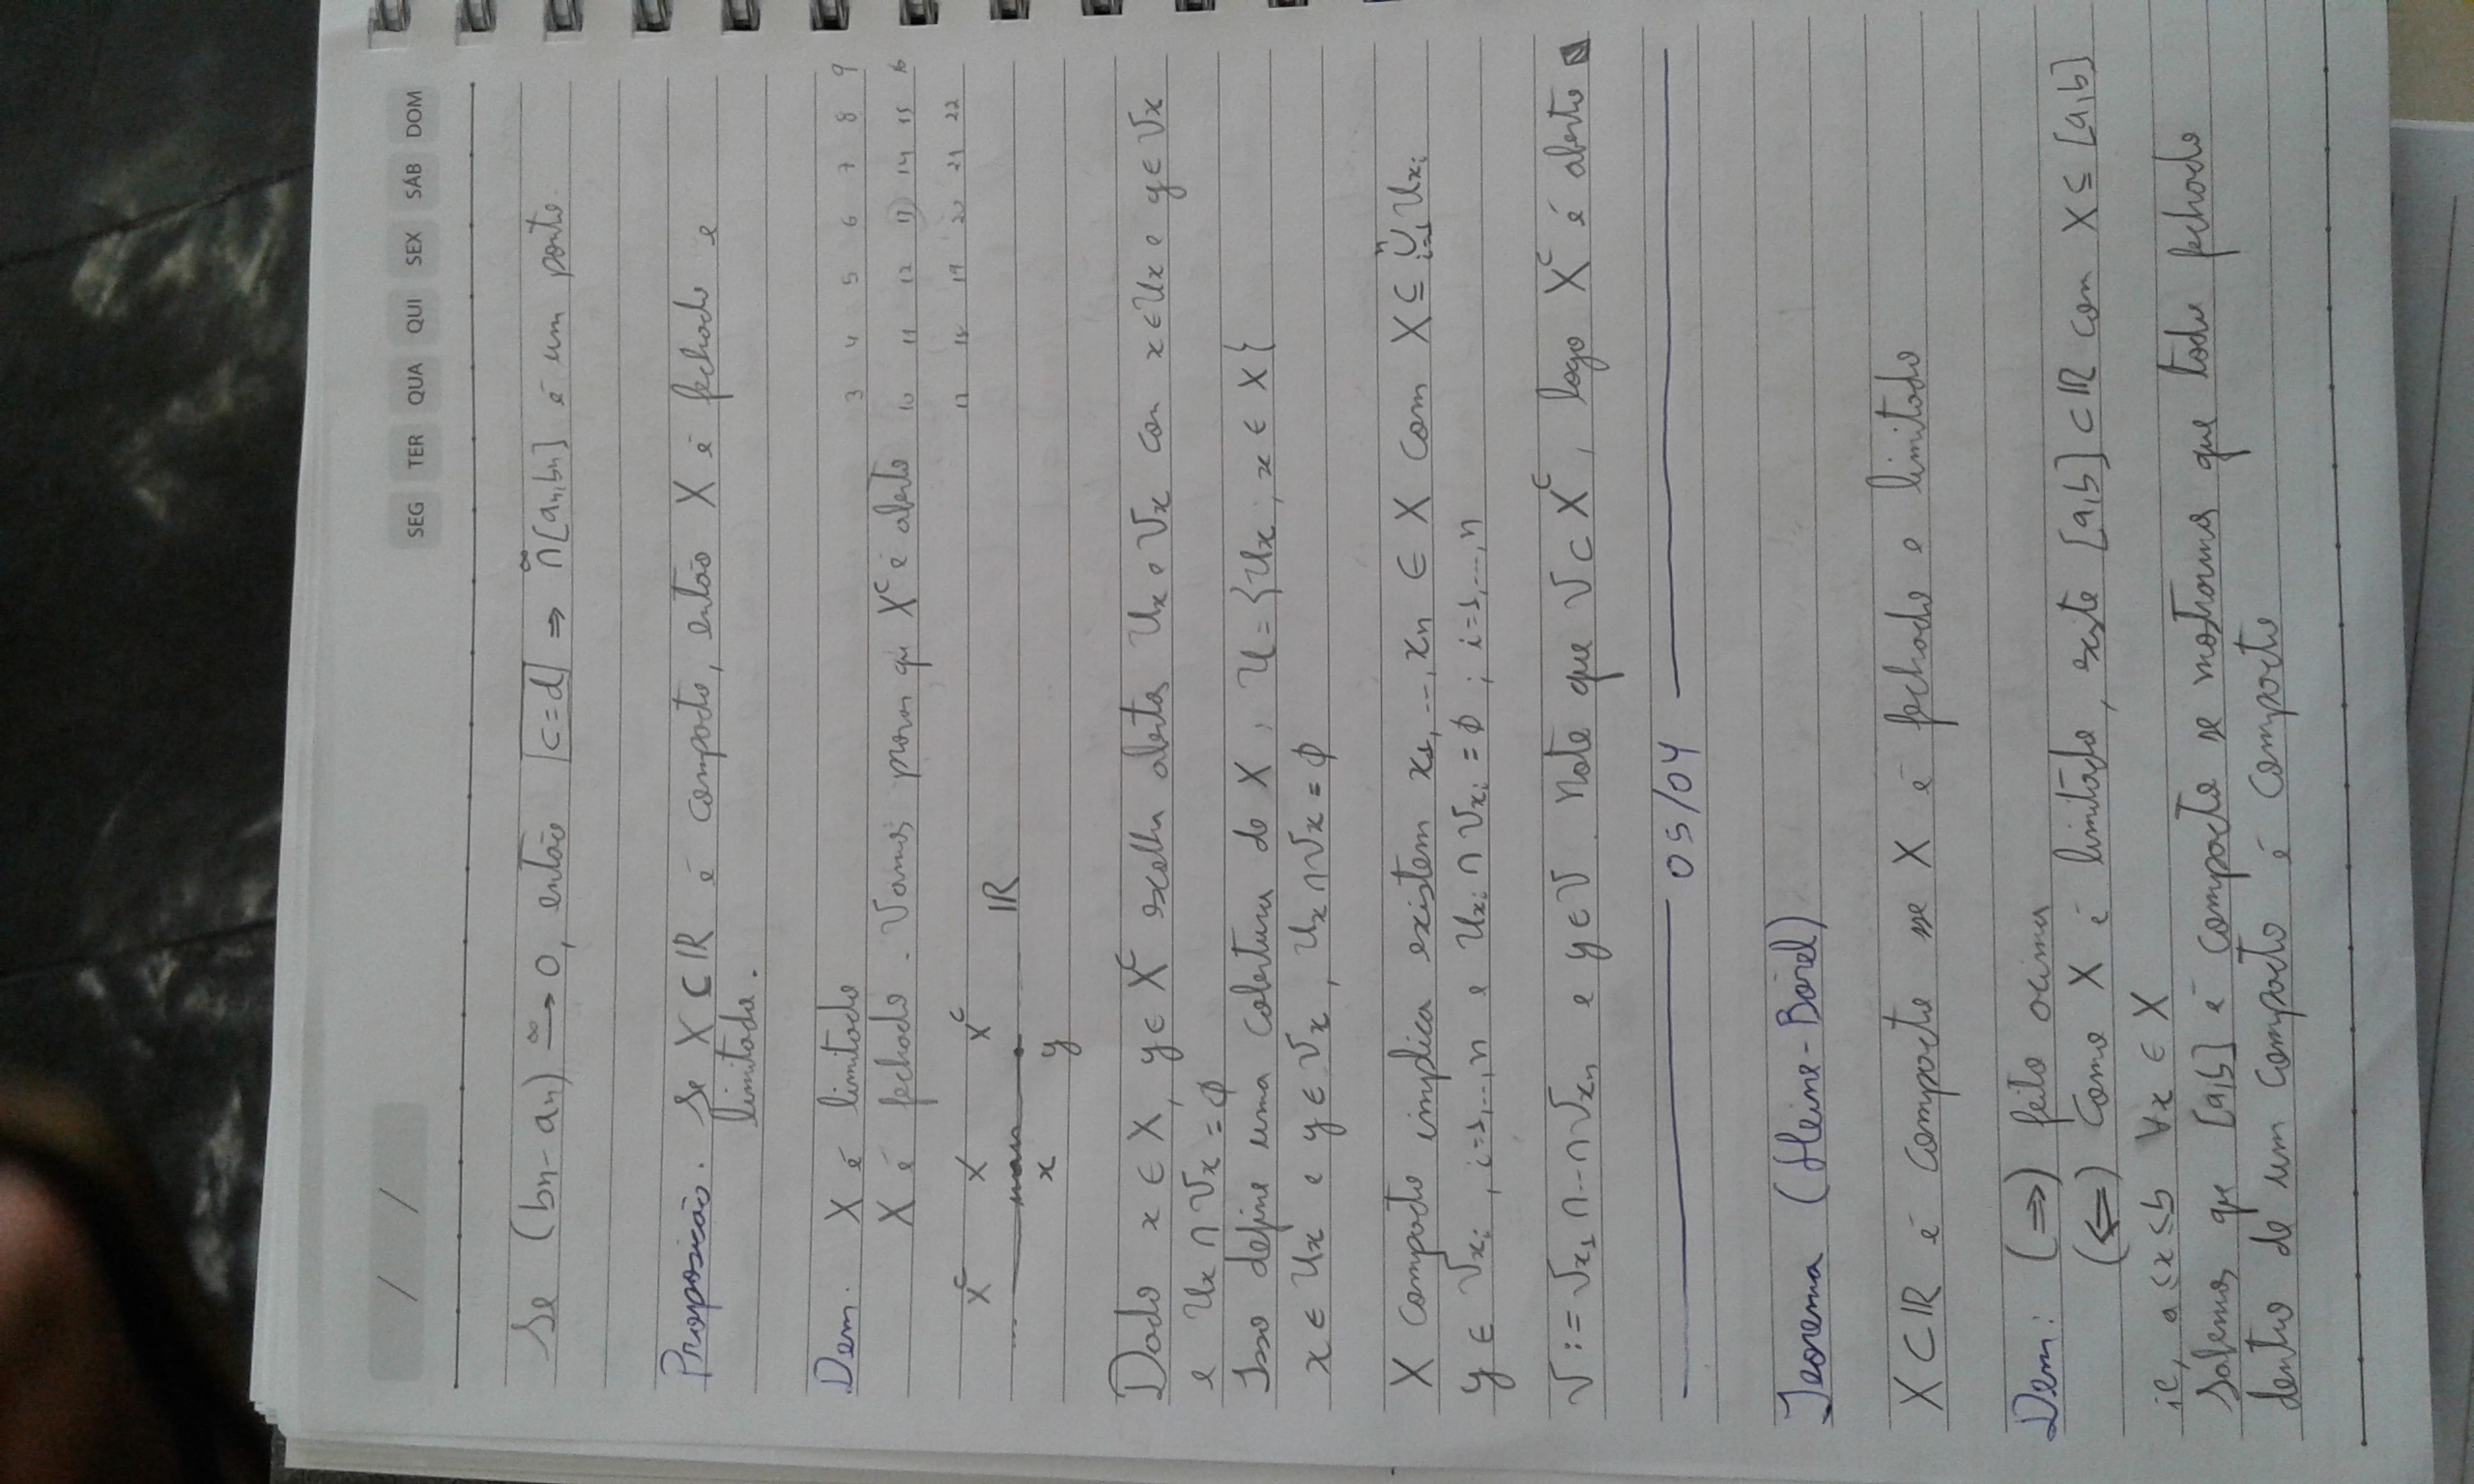 / /
SEG TER QUA QUI SEX SÁB DOM
Se (bn - an) →∞ 0, então |c=d| ⇒ ∩∞[an,bn] é um ponto.
Proposição. Se X ⊂ IR é compacto, então X é fechado e
limitado.
Dem: X é limitado
3 4 5 6 7 8 9
X é fechado. Vamos provar que Xᶜ é aberto
10 11 12 13 14 15 16
Xᶜ X Xᶜ
17 18 19 20 21 22
IR
x y
Dado x ∈ X, y ∈ Xᶜ escolha abertos Ux e Vx com x ∈ Ux e y ∈ Vx
e Ux ∩ Vx = ϕ
Isso define uma cobertura de X, U = {Ux; x ∈ X}
x ∈ Ux e y ∈ Vx, Ux ∩ Vx = ϕ
X compacto implica existem x1, ..., xn ∈ X com X ⊆ ∪ⁿi=1 Uxi
y ∈ Vxi, i=1,...,n e Uxi ∩ Vxi = ϕ; i=1,...,n
V := Vx1 ∩ ... ∩ Vxn e y ∈ V. Note que V ⊂ Xᶜ, logo Xᶜ é aberto
05/04
Teorema (Heine-Borel)
X ⊂ IR é compacto sse X é fechado e limitado
Dem: (⇒) feito acima
(⇐) Como X é limitado, existe [a,b] ⊂ IR com X ⊆ [a,b]
ie, a ≤ x ≤ b ∀x ∈ X
Sabemos que [a,b] é compacto se mostrarmos que todo fechado
dentro de um compacto é compacto